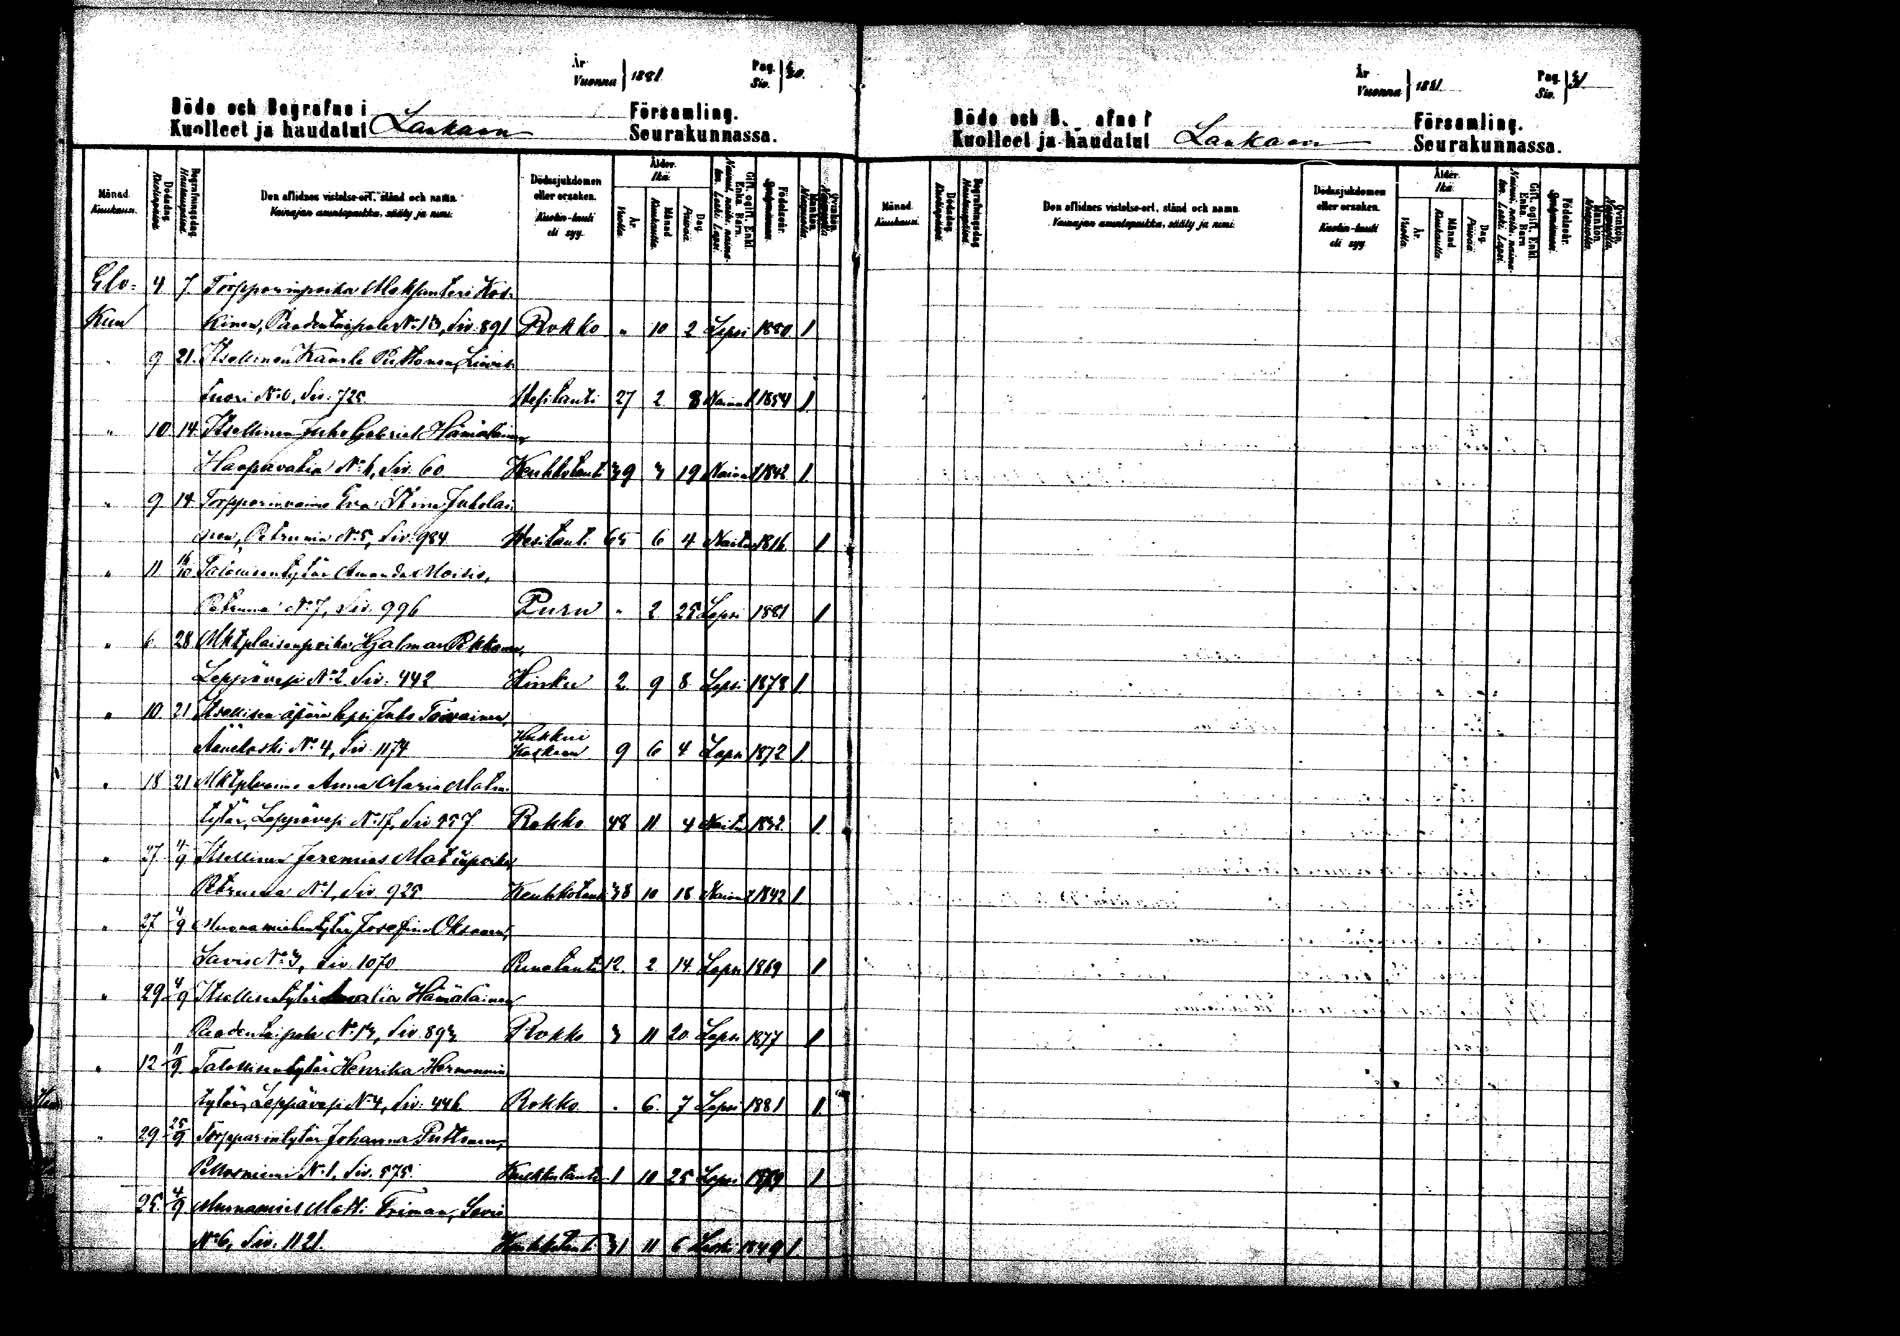 År
Vuonna } 1881. Pag. Siv. } 30.
Döde och Begrafne i Församling.
Kuolleet ja haudatut Laukaan Seurakunnassa.
Månad. Kuukausi. Dödsdag. Kuolinpäivä. Begrafningsdag. Hautauspäivä. Den aflidnes vistelse-ort, stånd och namn. Vainajan asuntopaikka, sääty ja nimi. Dödssjukdomen eller orsaken. Kuolin-tauti eli syy. Ålder. Ikä. År. Vuotta. Månad. Kuukautta. Dag. Päivää. Gift, ogift, Enkl. Enka. Barn. Födelseår. Syntymävuosi. Mankön. Miespuolta. Qvinkön. Naispuolta.
Elo- 4 7. Torpparinpoika Aleksanteri Kos-
kuu kinen, Paadentaipale No 13, Siv. 891 Rokko " 10 2 Lapsi 1880 1
" 9 21. Itsellinen Kaarle Puttonen, Lievestuori No 6, Siv. 725. Hesitauti 27 2 8 Nainut 1854 1
" 10 14 Itsellinen Juho Gabriel Hämäläinen
Haapavatia No 1, Siv. 60 Keuhkotauti 39 3 19 Nainut 1842 1
" 9 14 Torpparinvaimo Eva Stina Juholai
nen, Petruma No 5, Siv. 984 Vesitauti 65 6 4 Naitu 1816 1
" 11 Talollisentytär Amanda
Petruma No 7, Siv. 996 Puru " 2 25 Lapsi 1881 1
" 6 28 Mktplaisenpoika Hjalmar Pekkanen,
Leppävesi No 2 Siv. 442 Hinku 2 9 8 Lapsi 1878 1
" 10 21 Itsellisen äpärä lapsi Juho Toivainen,
Äänekoski No 4, Siv. 1174 Hukkui Koskeen 9 6 4 Lapsi 1872 1
" 18 21 Mktplvaimo Anna Maria Matin-
tytär, Leppävesi No 17, Siv 557 Rokko 48 11 4 Naitu 1832 1
" 27 4/9 Itsellinen Jeremias Matinpoika,
Petruma No 1, Siv. 925. Keuhkotauti 38 10 18 Nainut 1842 1
" 27 4/9 Muonamiehentytär Josefina Oksanen,
Savio No 3, Siv. 1070 Punatauti 12. 2 14. Lapsi 1869 1
" 29 4/9 Itsellisentytär Amalia Hämäläinen
Paadentaipale No 13, Siv. 893 Rokko 3 11 20 Lapsi 1877 1
" 12 11/9 Talollisentytär Henrika Hermannin
tytär, Leppävesi No 4, Siv. 446 Rokko " 6. 7 Lapsi 1881 1
" 29 25/9 Torpparintytär Johanna Puttonen,
No 1, Siv. 575. Keuhkotauti 1 10 25 Lapsi 1879 1
25 4/9 Muonamies Matti Friman, Savio
No 6, Siv. 1121. Keuhkotauti 31 11 6 Leski 1849 1
År
Vuonna } 1881 Pag. Siv. } 31.
Döde och B afne i Församling.
Kuolleet ja haudatut Laukaan Seurakunnassa.
Månad. Kuukausi. Dödsdag. Kuolinpäivä. Begrafningsdag. Hautauspäivä. Den aflidnes vistelse-ort, stånd och namn. Vainajan asuntopaikka, sääty ja nimi. Dödssjukdomen eller orsaken. Kuolin-tauti eli syy. Ålder. Ikä. År. Vuotta. Månad. Kuukautta. Dag. Päivää. Gift, ogift, Enkl. Enka. Barn. Födelseår. Syntymävuosi. Mankön. Miespuolta. Qvinkön. Naispuolta.